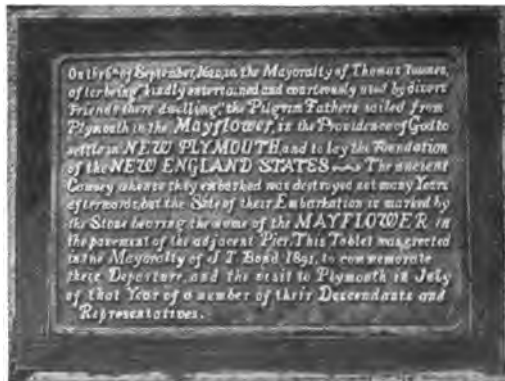 On the 6th of September, 1620, in the Mayoralty of Thomas Townes,
after being "kindly entertained and courteously used by divers
Friends there dwelling," the Pilgrim Fathers sailed from
Plymouth in the Mayflower, in the Providence of God to
settle in NEW PLYMOUTH, and to lay the Foundation
of the NEW ENGLAND STATES The ancient
Cawsey whence they embarked was destroyed not many Years
afterwards, but the Site of their Embarkation is marked by
the Stone bearing the name of the MAYFLOWER in
the pavement of the adjacent Pier. This Tablet was erected
in the Mayoralty of J. T. Bond 1891, to commemorate
their Departure, and the visit to Plymouth in July
of that Year of a number of their Descendants and
Representatives.